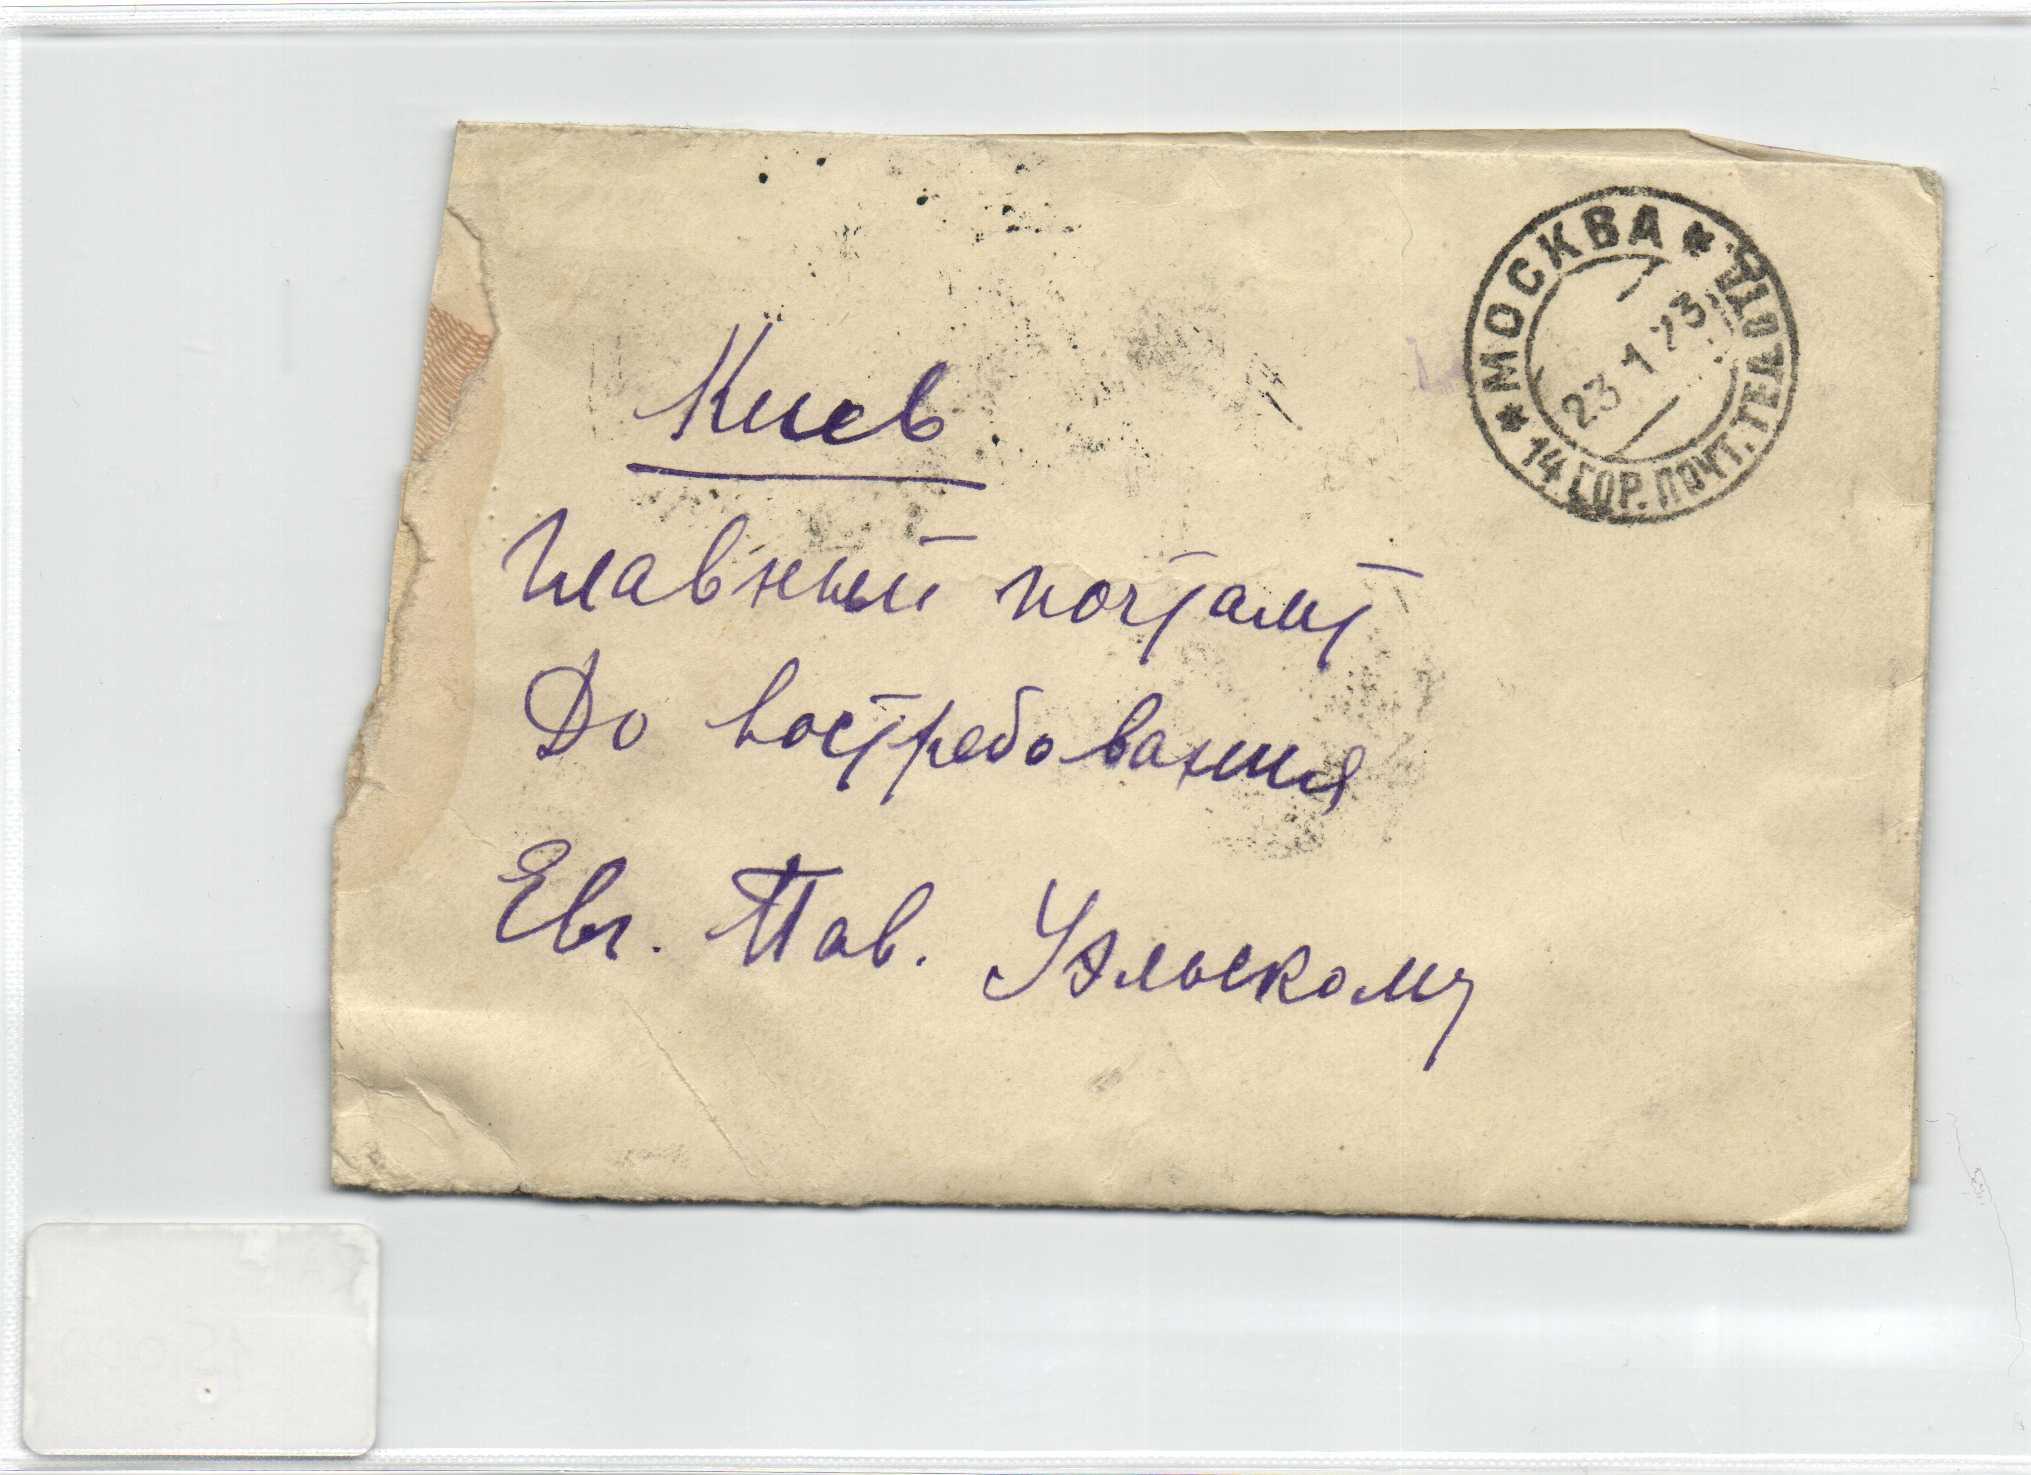 Киев
Главный почтамт
До востребования
Евг. Пав. Уэльскому
* МОСКВА *
14 ГОР. ПОЧТ. ТЕЛ. ОТД.
23 1 23